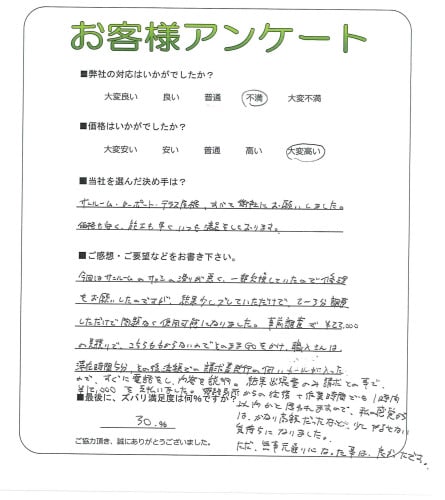 お客様アンケート
■弊社の対応はいかがでしたか?
大変良い 良い 普通 不満 大変不満
■価格はいかがでしたか?
大変安い 安い 普通 高い 大変高い
■当社を選んだ決め手は?
サンルーム・カーポート・テラス屋根、すべて御社にお願いしました。
価格も安く、施工も早くいつも満足をしております。
■ご感想・ご要望などをお書き下さい。
今回はサンルームのサッシの滑りが悪く、一部交換していたので修理
をお願いしたのですが、結果少しズレていただけで、2〜3分調整
しただけで問題なく使用可能になりました。事前調査で¥23,000
の見積りで、こちらもわからないのでとのままGOをかけ、職人さんは
滞在時間5分、その後
ので、すぐに電話をし、内容を説明。結果出張費のみ請求との事で、
¥12,000を支払いました。
からの往復+作業時間でも1時間
以内かと思われますので、私の感覚から
は、かなり高額だったなと、少しやるせない
気持ちになりました。
ただ、無事元通りになった事は、良かったです。
■最後に、ズバリ満足度は何%ですか?
30.%
ご協力頂き、誠にありがとうございました。